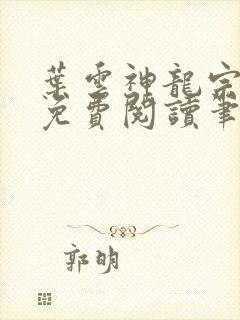 葉雲神龍宗
免費閱讀筆
郭明